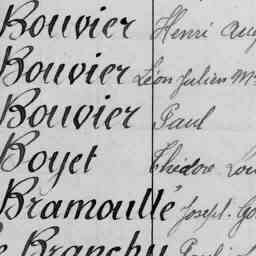 Bouvier Henri Aug
Bouvier Léon Julien
Bouvier Paul
Boyet Théodore Lou
Bramoullé Joseph. Go
Branchu